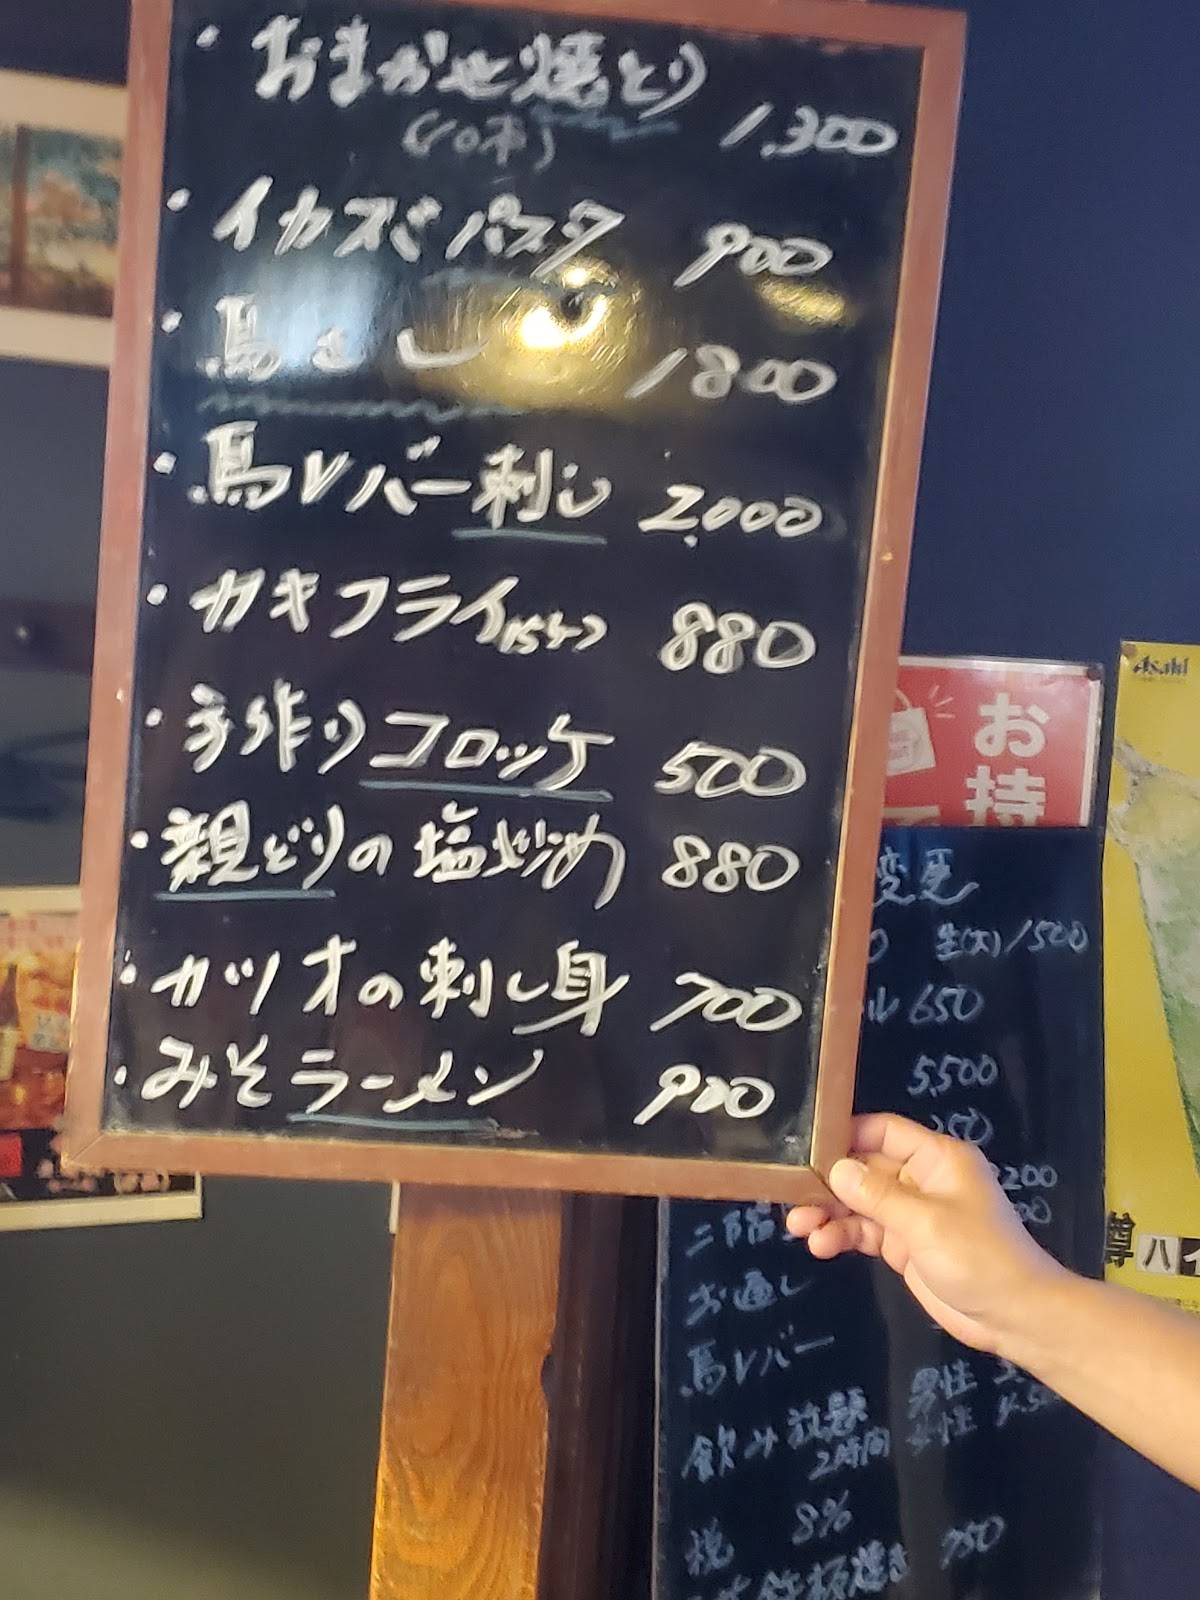 ・おまかせ焼とり
(10本) 1,300
・イカスミパスタ 900
・馬さし 1800
・馬レバー刺し 2,000
・カキフライ(5ケ) 880
・手作りコロッケ 500
・親どりの塩炒め 880
・カツオの刺し身 700
・みそラーメン 900
Asahi
お
持
変更
生(大)/500
ル 650
5,500
250
200
二階堂
お通し
馬レバー
飲み放題 男性
2時間 女性
税 8%
鉄板焼き 750
樽ハイ